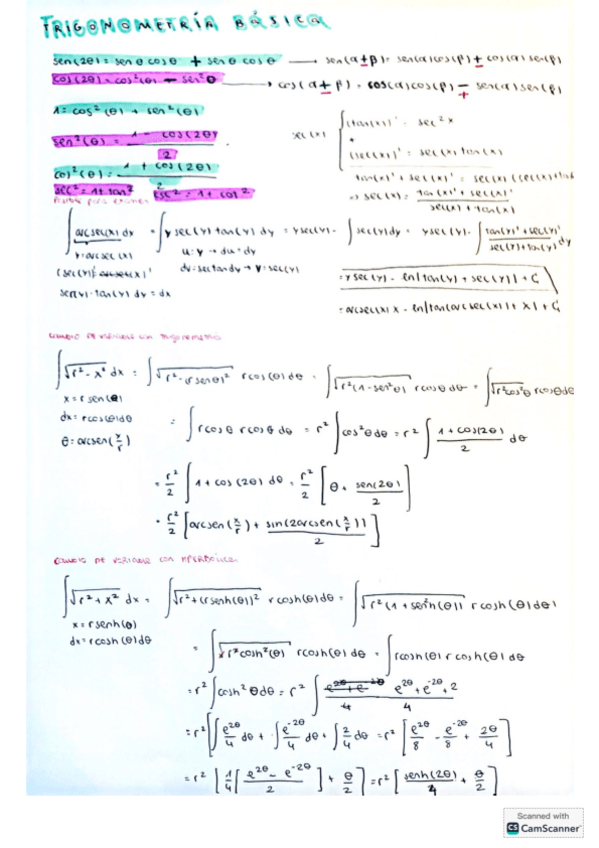 TRIGONOMETRÍA BÁSICA
sen(2θ) = senθ cosθ + senθ cosθ → sen(α±β) = sen(α)cos(β) ± cos(α)sen(β)
cos(2θ) = cos²(θ) − sen²θ → cos(α±β) = cos(α)cos(β) ∓ sen(α)sen(β)
1 = cos²(θ) + sen²(θ)
sen²(θ) = (1 − cos(2θ))/2
cos²(θ) = (1 + cos(2θ))/2
sec² = 1 + tan² csc² = 1 + cot²
sec(x) { (tan(x))' = sec²x
+
(sec(x))' = sec(x) tan(x)
tan(x)' + sec(x)' = sec(x)(sec(x)+tan
⇒ sec(x) = (tan(x)' + sec(x)')/(sec(x) + tan(x))
Posible para examen
∫ arcsec(x) dx = ∫ y sec(y) tan(y) dy = y sec(y) − ∫ sec(y) dy = y sec(y) − ∫ (tan(y)' + sec(y)')/(sec(y) + tan(y)) dy
y = arcsec(x) u = y → du = dy
dv = sec tan dy → v = sec(y)
sec(y)·tan(y) dy = dx
= y sec(y) − ln|tan(y) + sec(y)| + C
= arcsec(x) x − ln|tan(arcsec(x)) + x| + C
CAMBIO DE VARIABLE CON TRIGONOMETRÍA
∫ √(r² − x²) dx = ∫ √(r² − (r senθ)²) r cos(θ) dθ = ∫ √(r²(1 − sen²θ)) r cosθ dθ = ∫ √(r²cos²θ) r cosθ dθ
x = r sen(θ)
dx = r cos(θ) dθ
θ = arcsen(x/r)
= ∫ r cosθ r cosθ dθ = r² ∫ cos²θ dθ = r² ∫ (1 + cos(2θ))/2 dθ
= r²/2 ∫ 1 + cos(2θ) dθ = r²/2 [θ + sen(2θ)/2]
= r²/2 [arcsen(x/r) + sin(2arcsen(x/r))/2]
CAMBIO DE VARIABLE CON HIPERBÓLICA
∫ √(r² + x²) dx = ∫ √(r² + (r senh(θ))²) r cosh(θ) dθ = ∫ √(r²(1 + sen²h(θ))) r cosh(θ) dθ
x = r senh(θ)
dx = r cosh(θ) dθ
= ∫ √(r² cosh²(θ)) r cosh(θ) dθ = ∫ r cosh(θ) r cosh(θ) dθ
= r² ∫ cosh²θ dθ = r² ∫ (e^2θ + e^−2θ + 2)/4
= r² [∫ e^2θ/4 dθ + ∫ e^−2θ/4 dθ + ∫ 2/4 dθ = r² [e^2θ/8 − e^−2θ/8 + 2θ/4]
= r² [1/4 [(e^2θ − e^−2θ)/2] + θ/2] = r² [senh(2θ)/4 + θ/2]
Scanned with
CS CamScanner